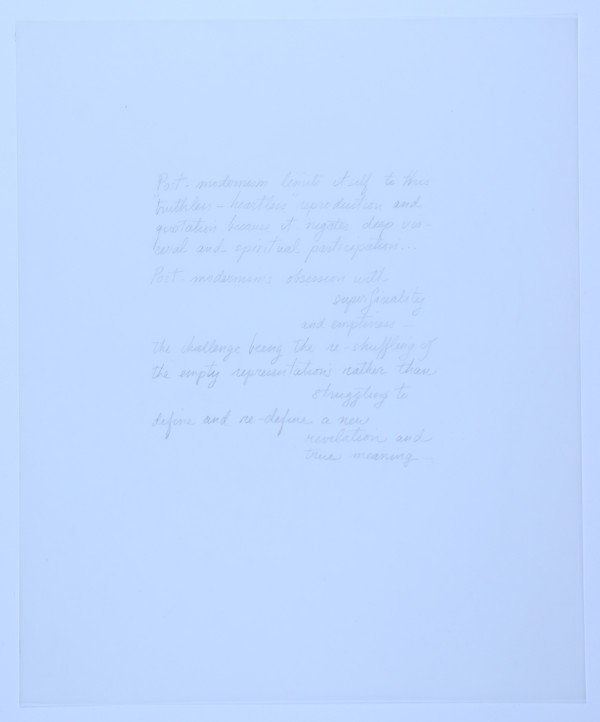 Post-modernism lends itself to this
truthless-heartless reproduction and
quotation because it negates deep vis-
ceral and spiritual participation...
Post-modernisms obsession with
superficiality
and emptiness...
the challenge being the re-shuffling of
the empty representations rather than
struggling to
define and re-define a new
revelation and
true meaning...